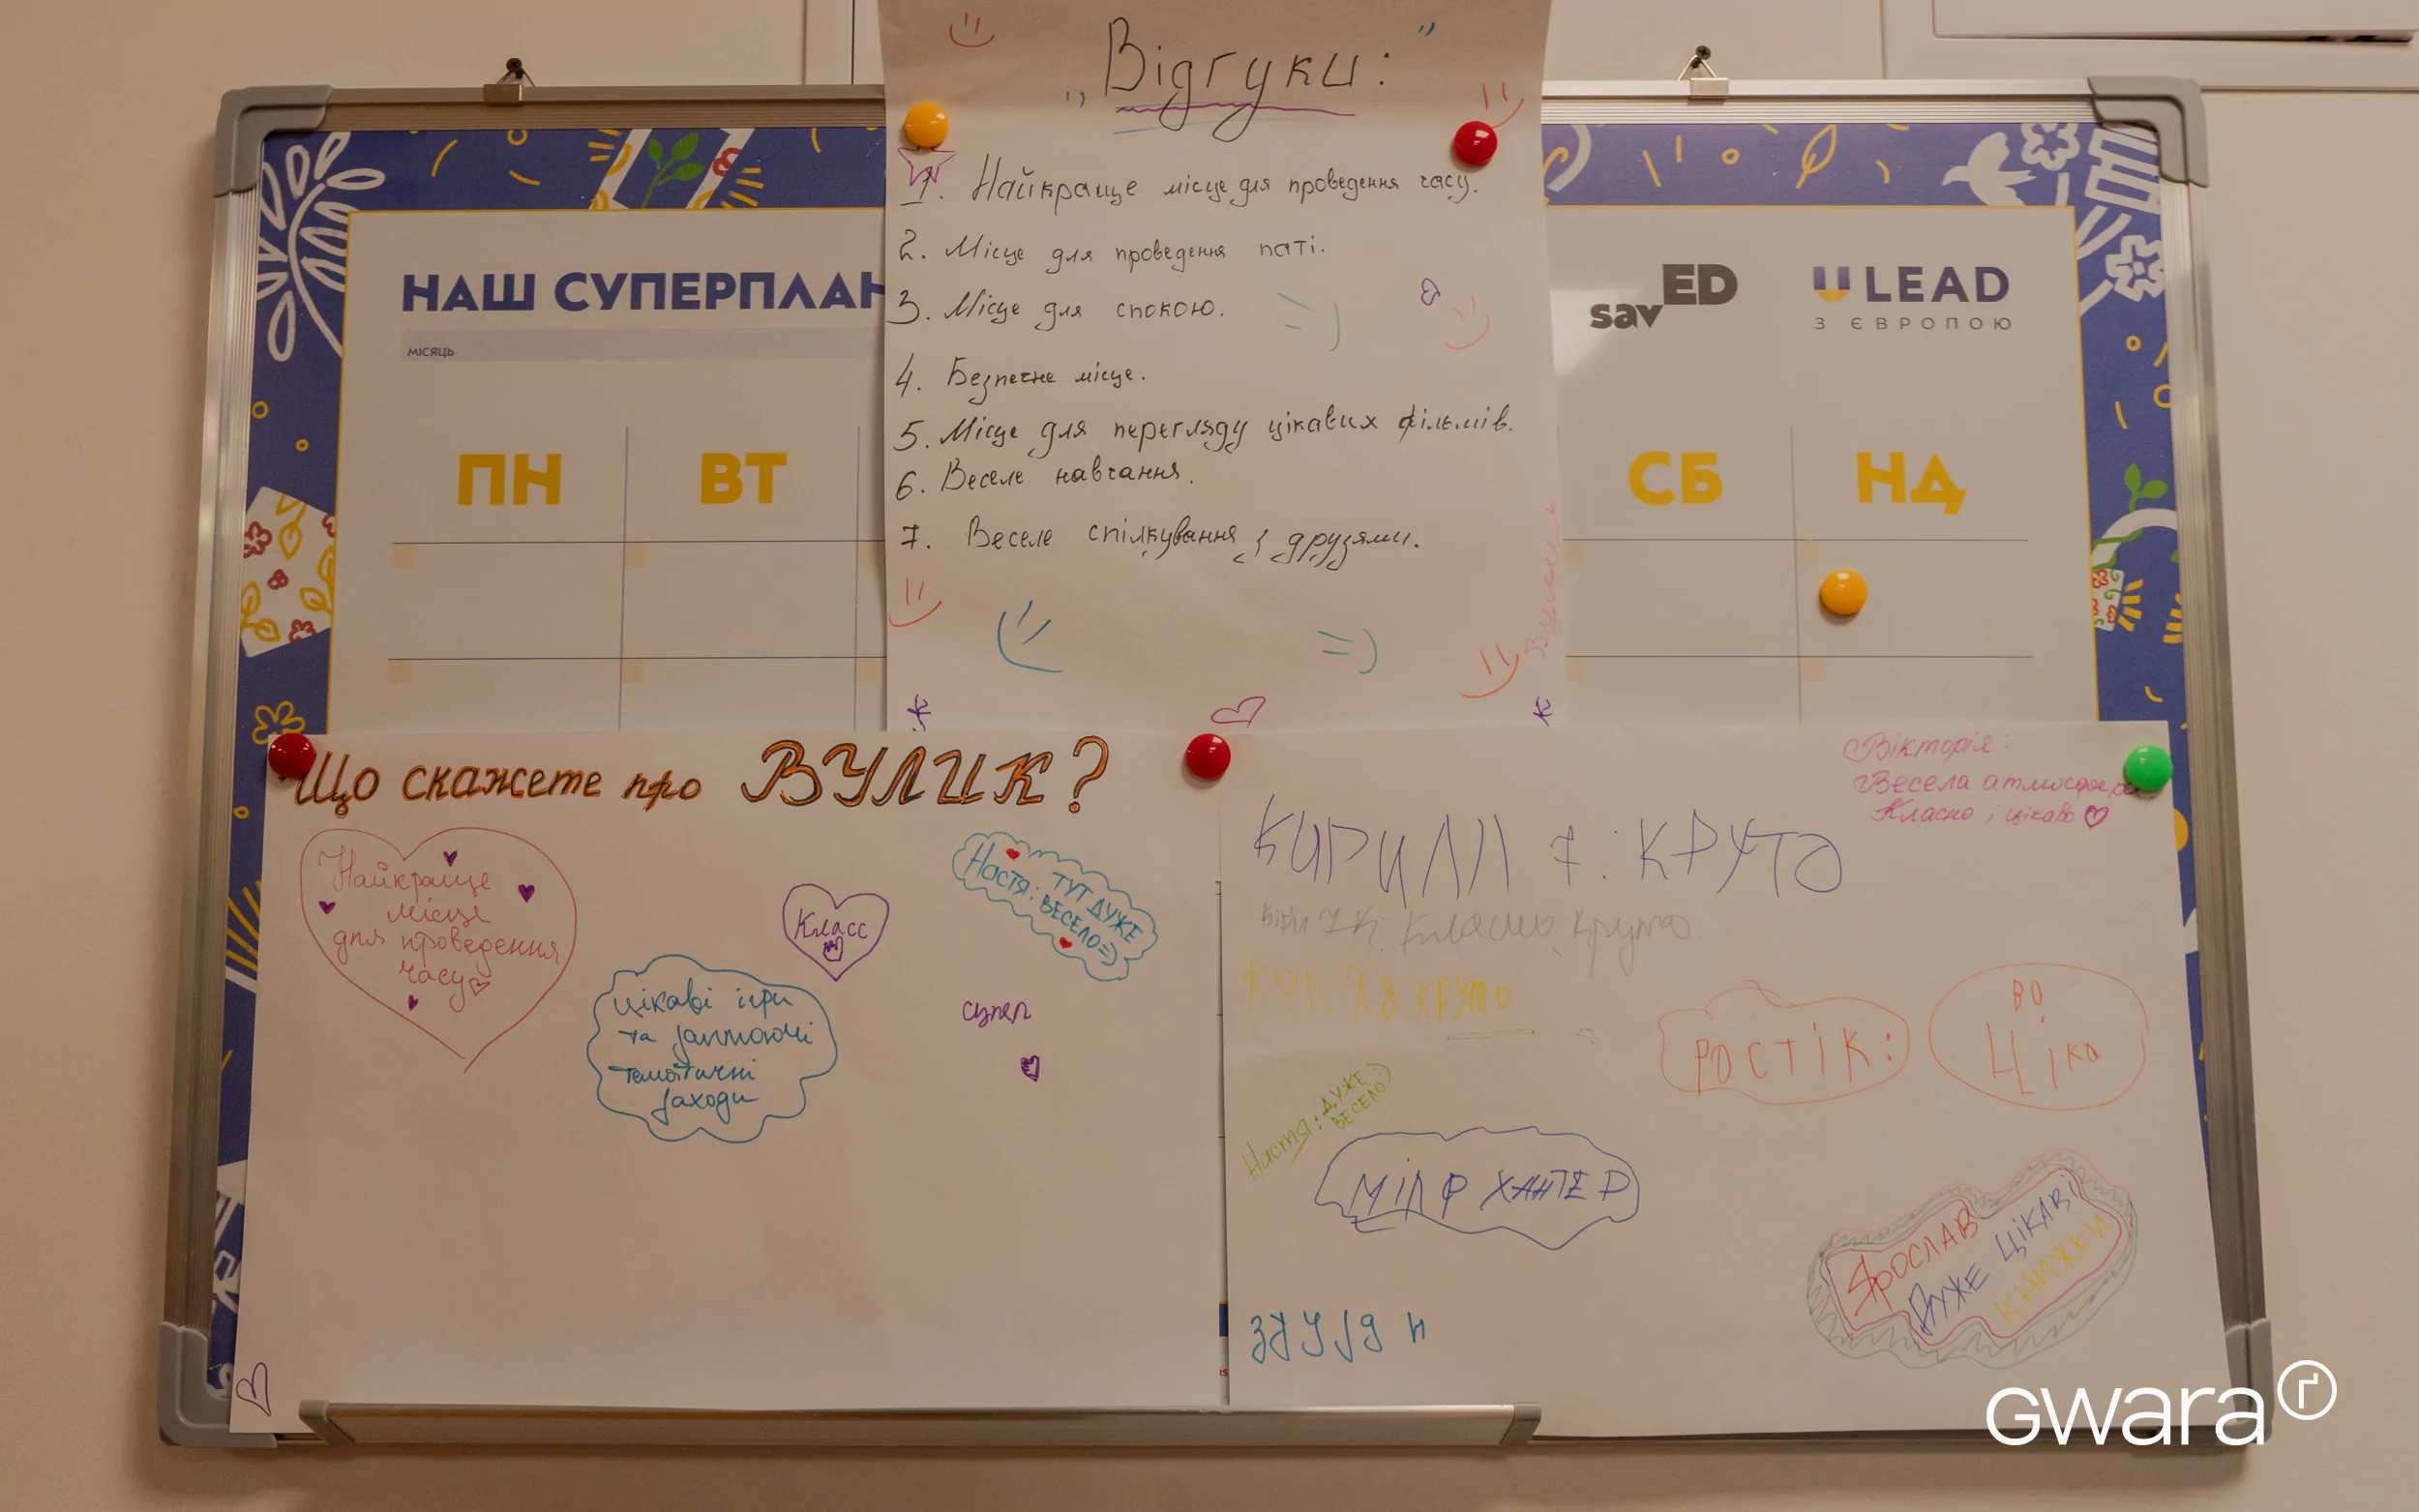 „Відгуки:”
1. Найкраще місце для проведення часу.
2. Місце для проведення паті.
3. Місце для спокою. =)
4. Безпечне місце.
5. Місце для перегляду цікавих фільмів.
6. Веселе навчання.
7. Веселе спілкування з друзями.
=)
НАШ СУПЕРПЛАН
МІСЯЦЬ
ПН ВТ
savED
ULEAD
З ЄВРОПОЮ
СБ НД
Що скажете про ВУЛИК?
Найкраще
місце
для проведення
часу
Класс
Настя: ТУТ ДУЖЕ
ВЕСЕЛО=)
цікаві ігри
та
тематичні
заходи
супер
Вікторія:
Весела атмосфера
Класно і цікаво
КИРИЛЛ 7: КРУТО
7к. Класно, круто.
КОЛЯ 8 КРУТО
РОСТІК:
ВО
Ціка
Настя: ДУЖЕ :)
ВЕСЕЛО
МІЛФ ХАНТЕР
ЯРОСЛАВ
ДУЖЕ ЦІКАВІ
КНИЖКИ
Gwara ґ